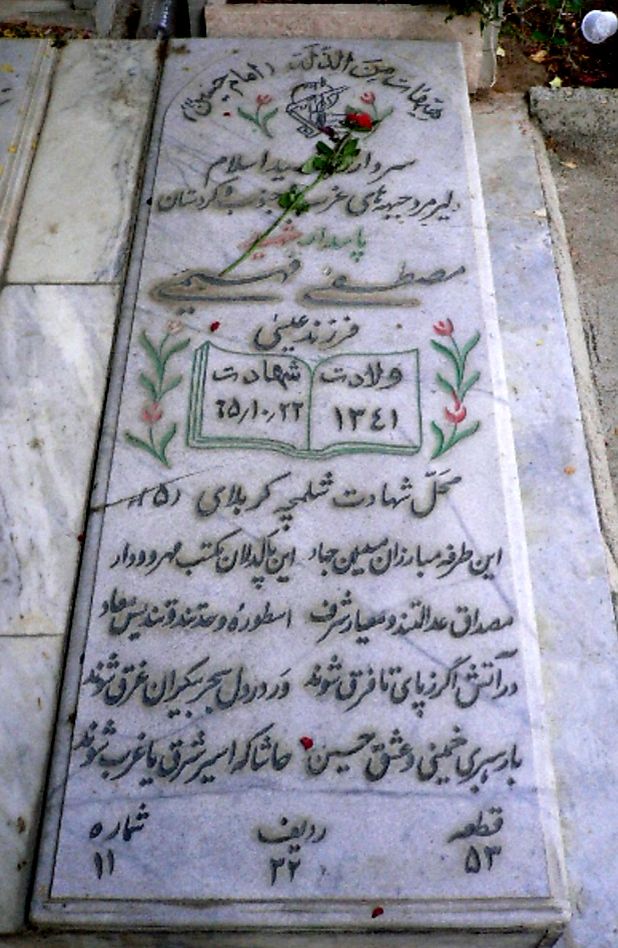 هیهات من الذلة (امام حسین)
سردار رشید اسلام
دلیرمرد جبهه‌های غرب و جنوب و کردستان
پاسدار شهید
مصطفی فهیمی
فرزند عیسی
ولادت شهادت
۱۳٤۱ ٦۵/۱۰/۲۲
محل شهادت شلمچه کربلای (۵)
این طرفه مبارزان میدین جهاد این پاکدلان مکتب مهر و وداد
مصداق عدالتند و معیار شرف اسطوره وحدتند و قندیس معاد
در آتش اگر ز پای تا فرق شوند ور در دل بحر بیکران غرق شوند
با رهبری خمینی و عشق حسین حاشا که اسیر شرق یا غرب شوند
قطعه ردیف شماره
۵۳ ۲۲ ۱۱